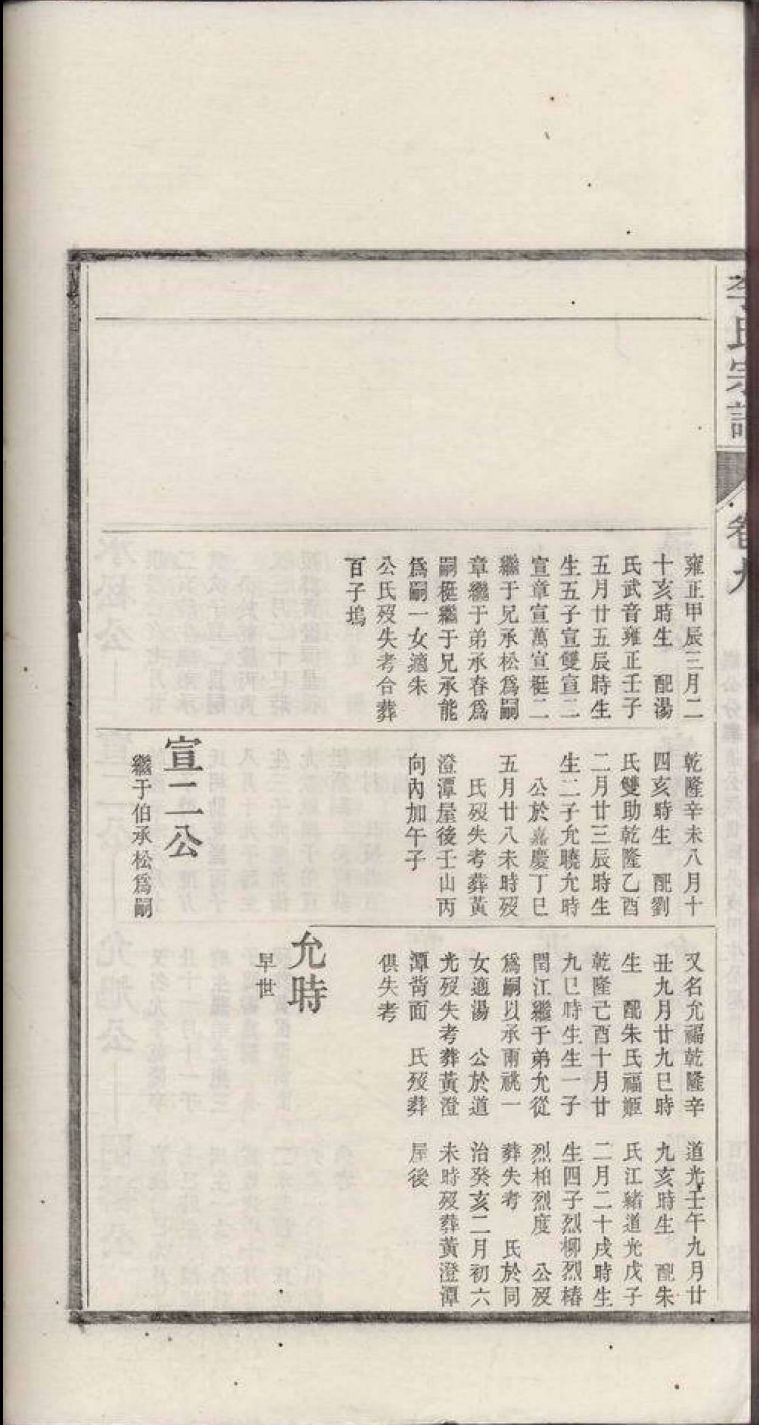 李氏宗譜
卷九
雍正甲辰三月二
十亥時生　配湯
氏武音雍正壬子
五月廿五辰時生
生五子宣雙宣二
宣章宣萬宣梃二
繼于兄承松爲嗣
章繼于弟承春爲
嗣梃繼于兄承能
爲嗣一女適朱
公氏歿失考合葬
百子塢
乾隆辛未八月十
四亥時生　配劉
氏雙助乾隆乙酉
二月廿三辰時生
生二子允曉允時
公於嘉慶丁巳
五月廿八未時歿
氏歿失考葬黃
澄潭屋後壬山丙
向內加午子
宣二公
繼于伯承松爲嗣
又名允福乾隆辛
丑九月廿九巳時
生　配朱氏福姬
乾隆己酉十月廿
九巳時生生一子
閏江繼于弟允從
爲嗣以承兩祧一
女適湯　公於道
光歿失考葬黃澄
潭嵛面　氏歿葬
俱失考
允時
早世
道光壬午九月廿
九亥時生　配朱
氏江緒道光戊子
二月二十戌時生
生四子烈柳烈椿
烈柏烈度　公歿
葬失考　氏於同
治癸亥二月初六
未時歿葬黃澄潭
屋後